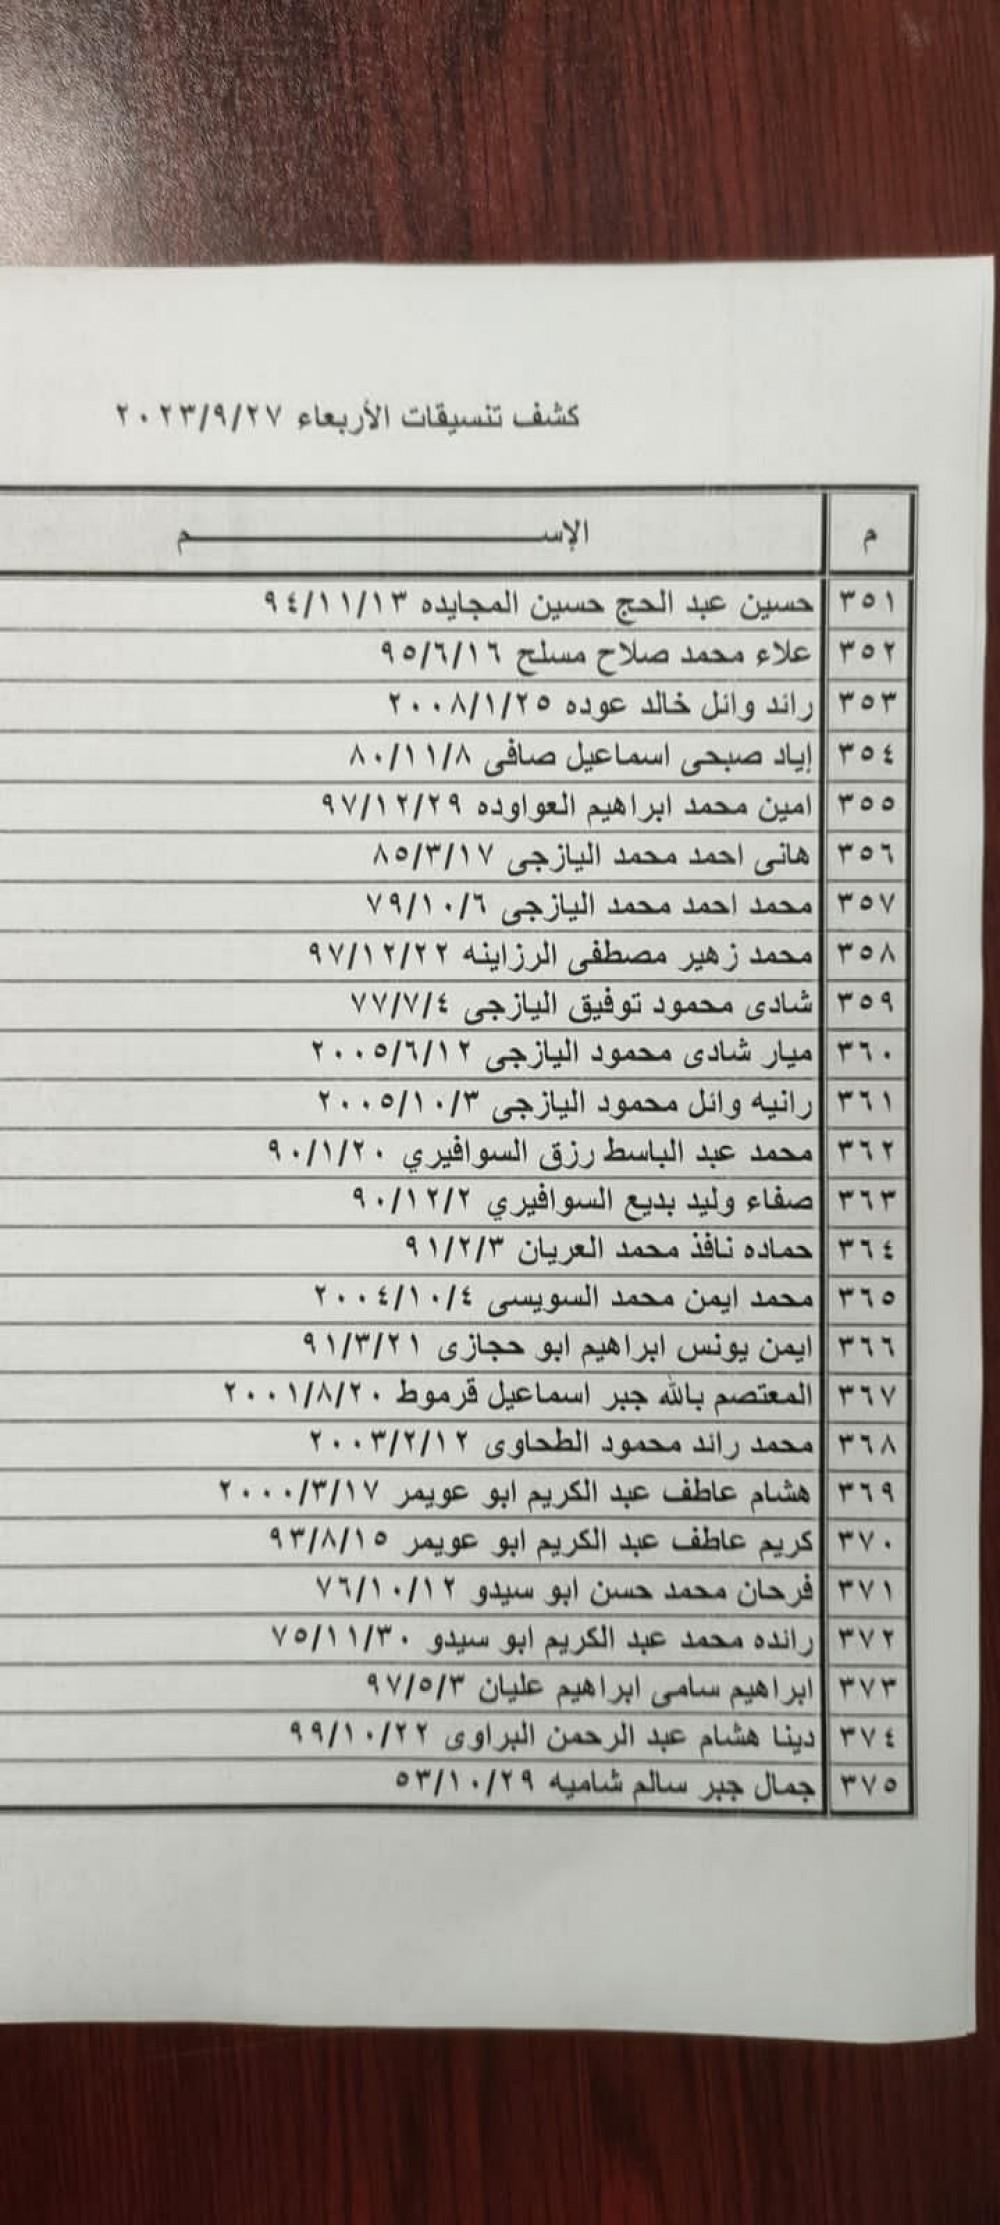 كشف تنسيقات الأربعاء ٢٠٢٣/٩/٢٧
م الإســـــــــــــــــــــم
٣٥١ حسين عبد الحج حسين المجايده ٩٤/١١/١٣
٣٥٢ علاء محمد صلاح مسلح ٩٥/٦/١٦
٣٥٣ رائد وائل خالد عوده ٢٠٠٨/١/٢٥
٣٥٤ إياد صبحى اسماعيل صافى ٨٠/١١/٨
٣٥٥ امين محمد ابراهيم العواوده ٩٧/١٢/٢٩
٣٥٦ هانى احمد محمد اليازجى ٨٥/٣/١٧
٣٥٧ محمد احمد محمد اليازجى ٧٩/١٠/٦
٣٥٨ محمد زهير مصطفى الرزاينه ٩٧/١٢/٢٢
٣٥٩ شادى محمود توفيق اليازجى ٧٧/٧/٤
٣٦٠ ميار شادى محمود اليازجى ٢٠٠٥/٦/١٢
٣٦١ رانيه وائل محمود اليازجى ٢٠٠٥/١٠/٣
٣٦٢ محمد عبد الباسط رزق السوافيري ٩٠/١/٢٠
٣٦٣ صفاء وليد بديع السوافيري ٩٠/١٢/٢
٣٦٤ حماده نافذ محمد العريان ٩١/٢/٣
٣٦٥ محمد ايمن محمد السويسى ٢٠٠٤/١٠/٤
٣٦٦ ايمن يونس ابراهيم ابو حجازى ٩١/٣/٢١
٣٦٧ المعتصم بالله جبر اسماعيل قرموط ٢٠٠١/٨/٢٠
٣٦٨ محمد رائد محمود الطحاوى ٢٠٠٣/٢/١٢
٣٦٩ هشام عاطف عبد الكريم ابو عويمر ٢٠٠٠/٣/١٧
٣٧٠ كريم عاطف عبد الكريم ابو عويمر ٩٣/٨/١٥
٣٧١ فرحان محمد حسن ابو سيدو ٧٦/١٠/١٢
٣٧٢ رائده محمد عبد الكريم ابو سيدو ٧٥/١١/٣٠
٣٧٣ ابراهيم سامى ابراهيم عليان ٩٧/٥/٣
٣٧٤ دينا هشام عبد الرحمن البراوى ٩٩/١٠/٢٢
٣٧٥ جمال جبر سالم شاميه ٥٣/١٠/٢٩